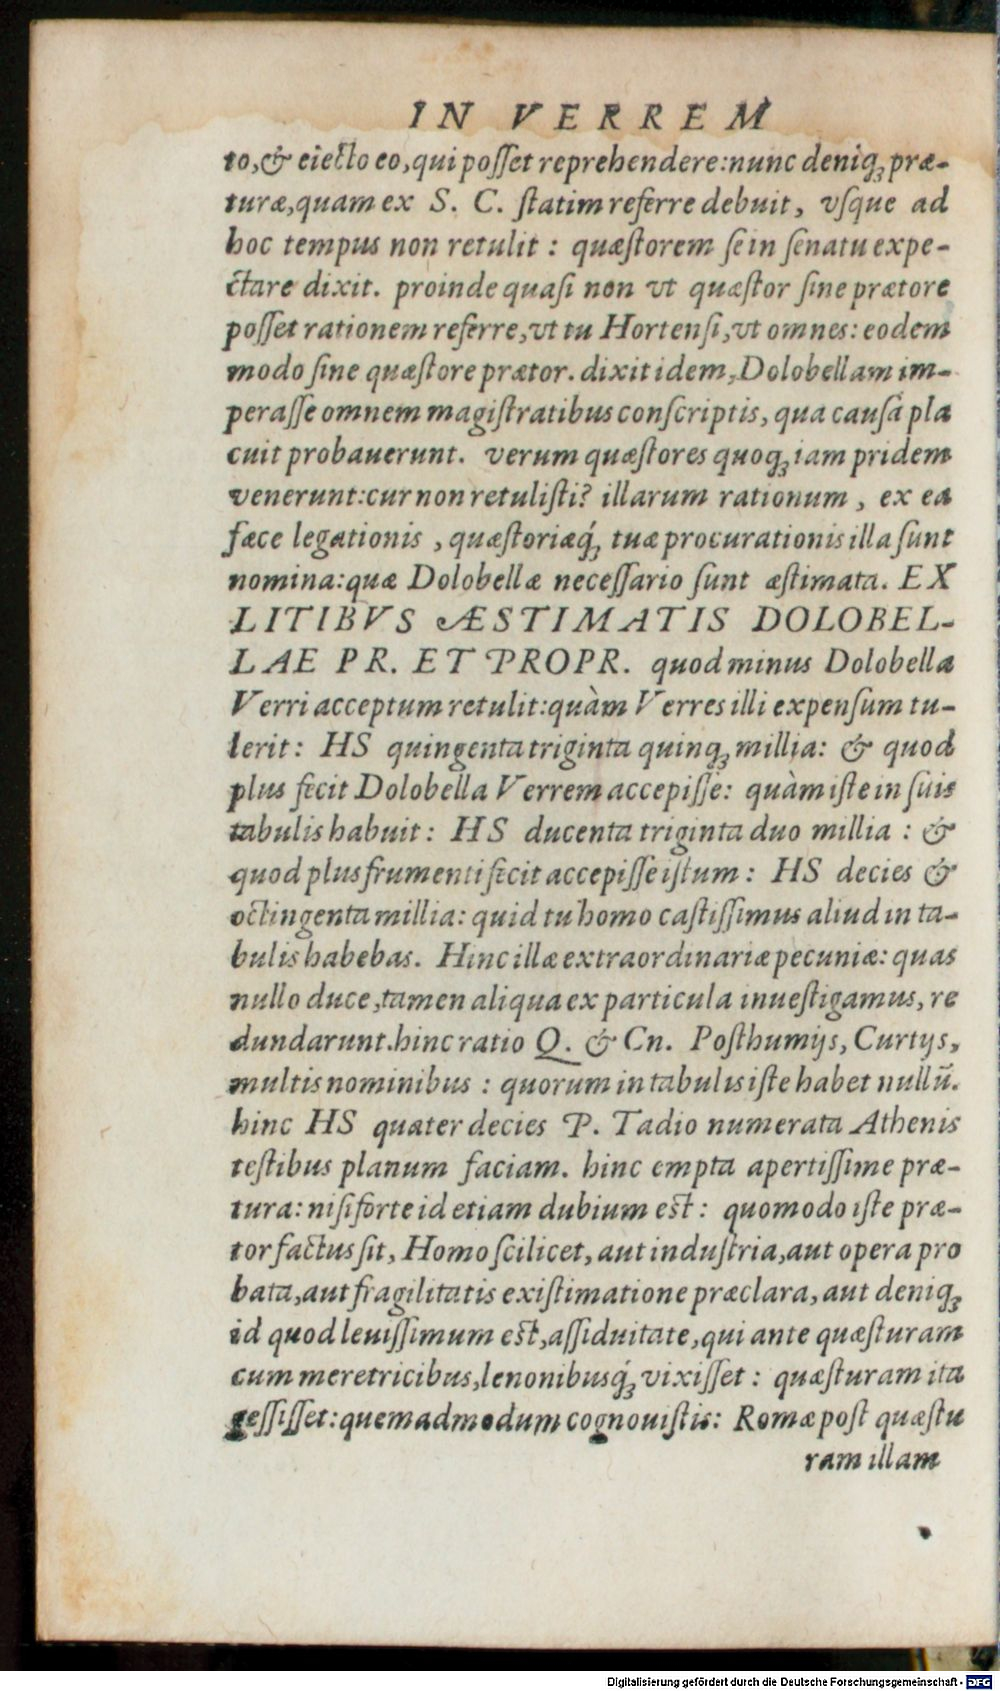 IN VERREM
to, & eiecto eo, qui posset reprehendere: nunc deniq; præ-
turæ, quam ex S. C. statim referre debuit, vsque ad
hoc tempus non retulit: quæstorem se in senatu expe-
ctare dixit. proinde quasi non vt quæstor sine prætore
posset rationem referre, vt tu Hortensi, vt omnes: eodem
modo sine quæstore prætor. dixit idem, Dolobellam im-
perasse omnem magistratibus conscriptis, qua causâ pla
cuit probauerunt. verum quæstores quoq; iam pridem
venerunt: cur non retulisti? illarum rationum, ex ea
fæce legationis, quæstoriæq́; tuæ procurationis illa sunt
nomina: quæ Dolobellæ necessario sunt æstimata. EX
LITIBVS ÆSTIMATIS DOLOBEL-
LAE PR. ET PROPR. quod minus Dolobella
Verri acceptum retulit: quàm Verres illi expensum tu-
lerit: HS quingenta triginta quinq; millia: & quod
plus fecit Dolobella Verrem accepisse: quàm iste in suis
tabulis habuit: HS ducenta triginta duo millia: &
quod plus frumenti fecit accepisse istum: HS decies &
octingenta millia: quid tu homo castissimus aliud in ta-
bulis habebas. Hinc illæ extraordinariæ pecuniæ: quas
nullo duce, tamen aliqua ex particula inuestigamus, re
dundarunt. hinc ratio Q. & Cn. Posthumijs, Curtijs,
multis nominibus: quorum in tabulis iste habet nullū.
hinc HS quater decies P. Tadio numerata Athenis
testibus planum faciam. hinc empta apertissime præ-
tura: nisi forte id etiam dubium est: quomodo iste præ-
tor factus sit, Homo scilicet, aut industria, aut opera pro
bata, aut fragilitatis existimatione præclara, aut deniq;
id quod leuissimum est, assiduitate, qui ante quæsturam
cum meretricibus, lenonibusq́; vixisset: quæsturam ita
gessisset: quemadmodum cognouistis: Romæ post quæstu
ram illam
Digitalisierung gefördert durch die Deutsche Forschungsgemeinschaft - DFG